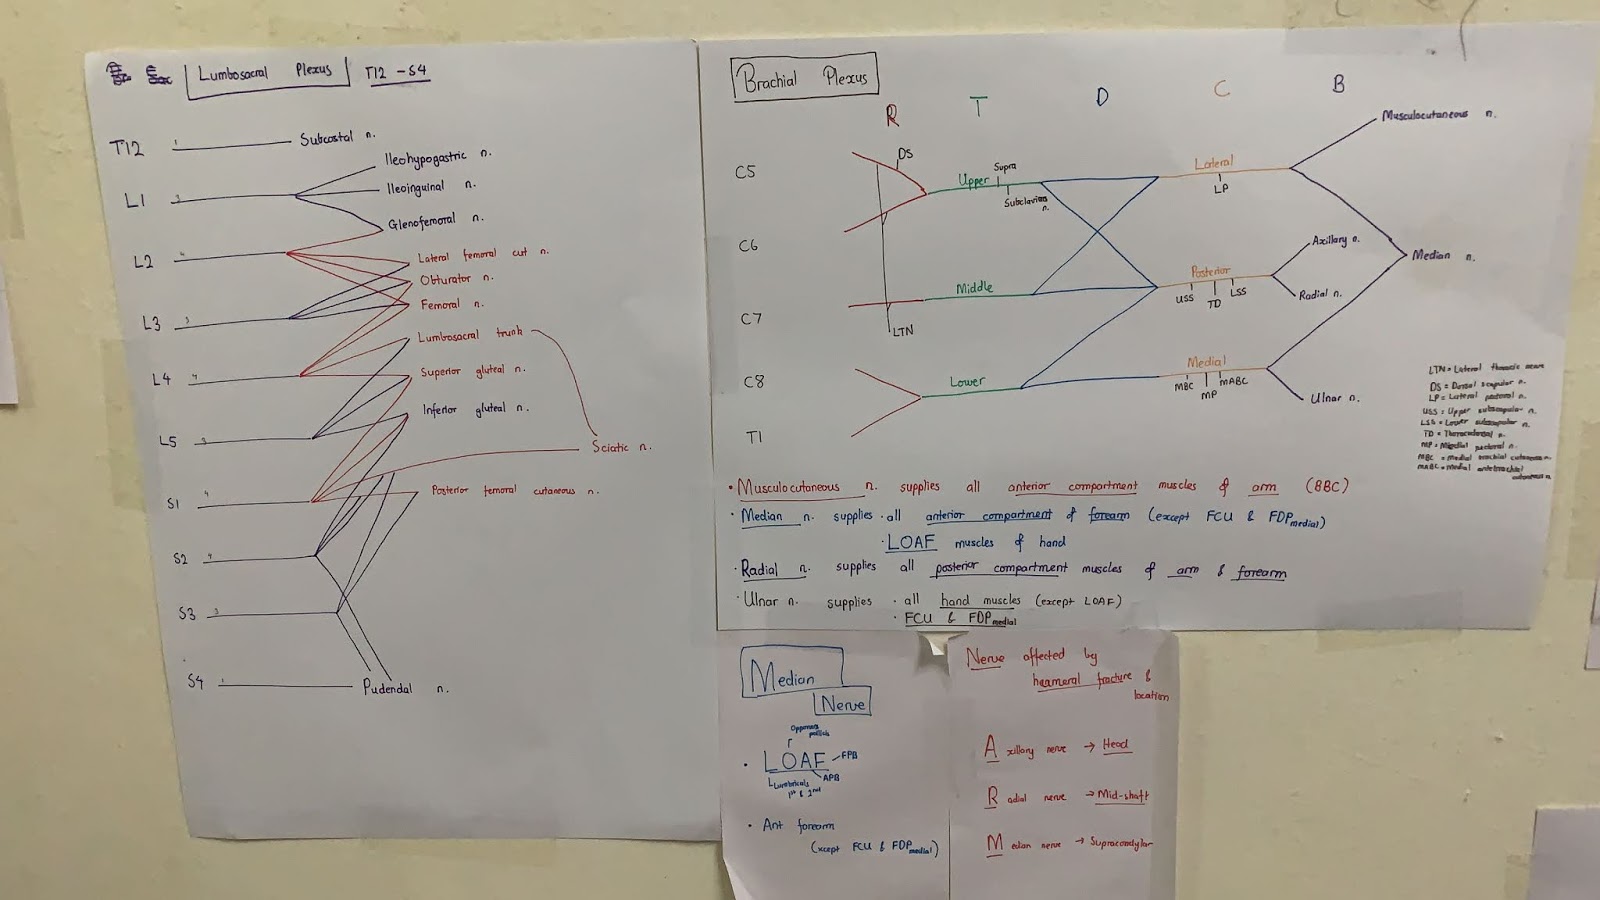 Lumbosacral Plexus T12 - S4
T12
Subcostal n.
L1
Ileohypogastric n.
Ileoinguinal n.
Glenofemoral n.
L2
Lateral femoral cut n.
Obturator n.
Femoral n.
L3
Lumbosacral trunk
L4
Superior gluteal n.
Inferior gluteal n.
L5
Sciatic n.
S1
Posterior femoral cutaneous n.
S2
S3
S4
Pudendal n.
Brachial Plexus
R T D C B
C5
DS
Upper
Supra
Subclavius n.
Lateral
LP
Musculocutaneous n.
C6
Axillary n.
Median n.
Posterior
USS TD LSS
Radial n.
C7
Middle
LTN
C8
Lower
Medial
MBC MP MABC
Ulnar n.
T1
LTN = Lateral thoracic
DS = Dorsal scapular n.
LP = Lateral pectoral n.
USS = Upper subscapular n.
LSS = Lower subscapular n.
TD = n.
MP = Medial pectoral n.
MBC = medial brachial cutaneous n.
MABC = Medial antebrachial
cutaneous n.
• Musculocutaneous n. supplies all anterior compartment muscles of arm (BBC)
• Median n. supplies • all anterior compartment of forearm (except FCU & FDP medial)
• LOAF muscles of hand
• Radial n. supplies all posterior compartment muscles of arm & forearm
• Ulnar n. supplies • all hand muscles (except LOAF)
• FCU & FDP medial
Median
Nerve
Opponens
pollicis
• LOAF
FPB
APB
Lumbricals
1st & 2nd
• Ant forearm
(xcept FCU & FDP medial)
Nerve affected by
heameral fracture &
location
Axillary nerve → Head
Radial nerve → Mid-shaft
Median nerve → Supracondylar